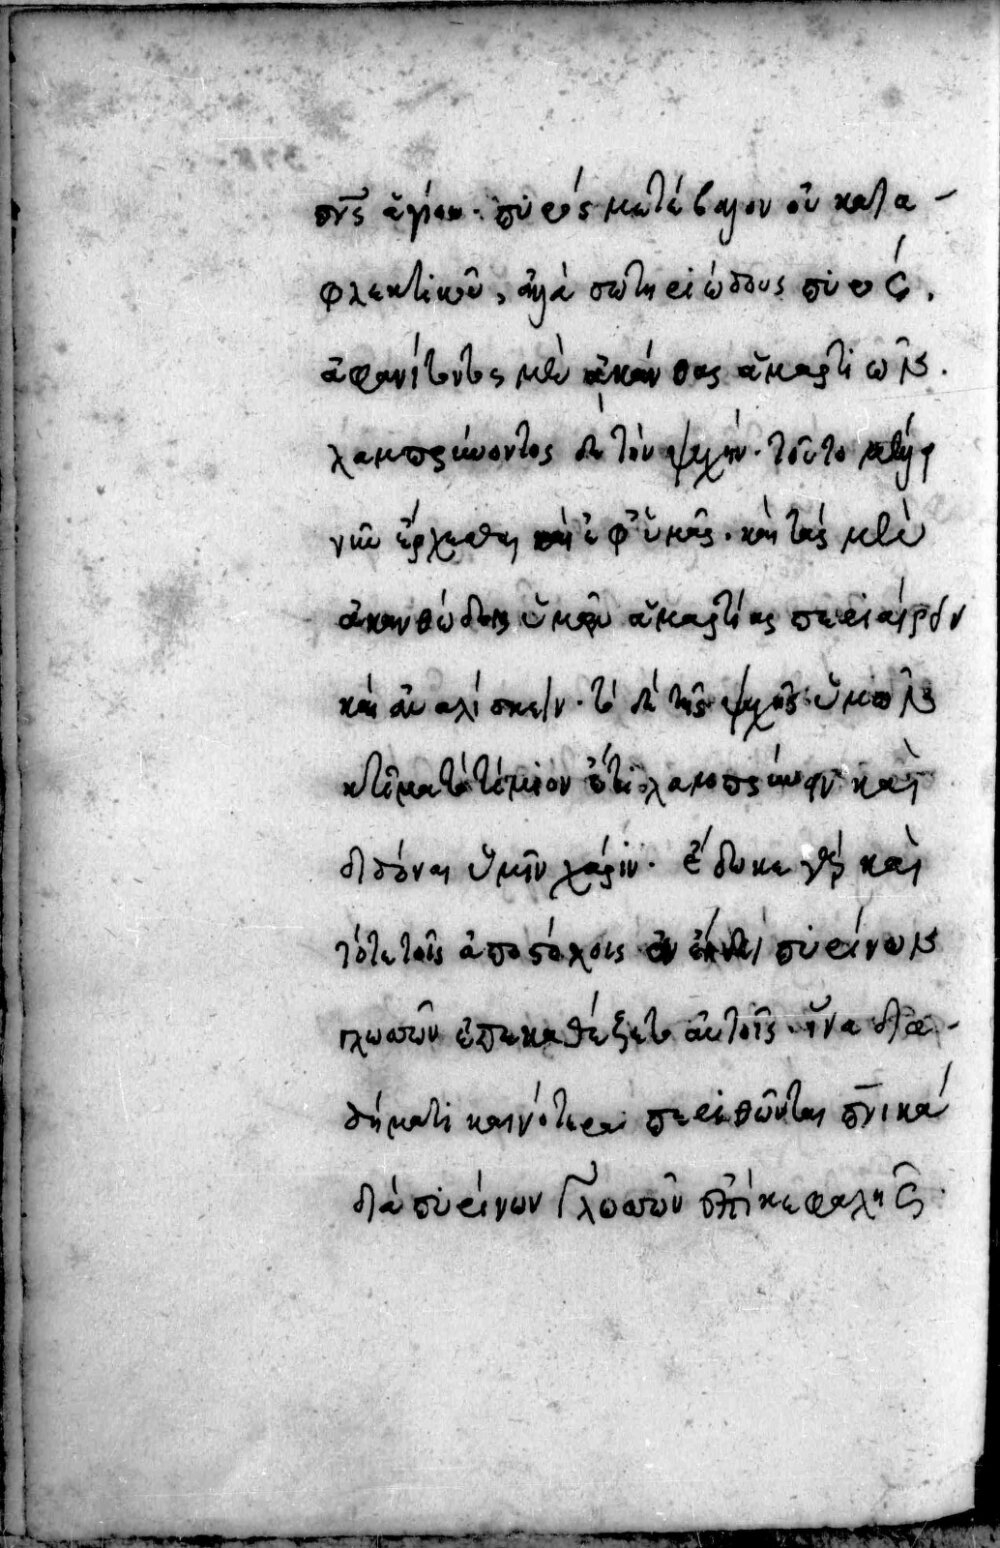 πνς ἁγίου· πυρὸς μετέβαλον οὐ κατα-
φλεκτικοῦ, ἀλλὰ σωτηριώδους πυρός.
ἀφανίζοντος μὲν ἀκάνθας ἁμαρτιῶν.
λαμπρύνοντος δὲ τὴν ψυχήν. τοῦτο μέλλει
νῦν ἔρχεσθαι καὶ ἐφ' ὑμᾶς. καὶ τὰς μὲν
ἀκανθώδεις ὑμῶν ἁμαρτίας περιαιρεῖν
καὶ ἀναλίσκειν. τὸ δὲ τῆς ψυχῆς ὑμῶν
κτῆμα τὸ τίμιον ἔτι λαμπρύνειν καὶ
διδόναι ὑμῖν χάριν. ἔδωκε γὰρ καὶ
τότε τοῖς ἀποστόλοις ἐν εἴδει πυρίνων
γλωσσῶν ἐπεκαθέζετο αὐτοῖς. ἵνα δια-
δήματι καινότερα περιθῶνται πνικὰ
διὰ πυρίνων γλωσσῶν ἐπὶ κεφαλῆς.